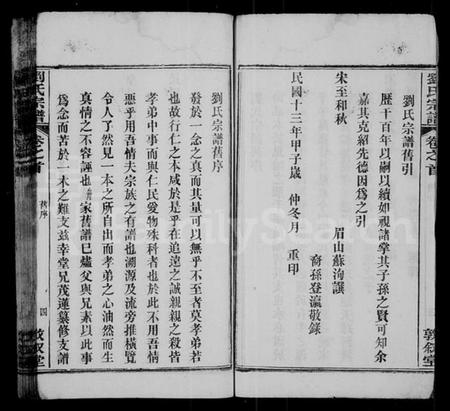 劉氏宗譜
卷之首
敦叙堂
劉氏宗譜舊引
歷千百年以嗣以續如視諸掌其子孫之賢可知余
嘉其克紹先德因為之引
宋至和秋
眉山蘇洵譔
裔孫登瀛敬錄
民國十三年甲子歲仲冬月 重印
劉氏宗譜舊序
發於一念之真而其量可以無乎不至者莫孝弟若
也故行仁之本咸於是乎在追遠之誠親親之殺皆
孝弟中事而與仁民愛物殊科者也於此不用吾情
惡乎用吾情夫宗族之有譜也溯源及流旁推橫覽
令人了然見一本之所自出而孝弟之心油然而生
真情之不容誣也 家舊譜已燼父與兄素以此事
為念而苦於一木之難支茲幸堂兄茂蓮纂修支譜
劉氏宗譜
卷之首
舊序
四
敦叙堂